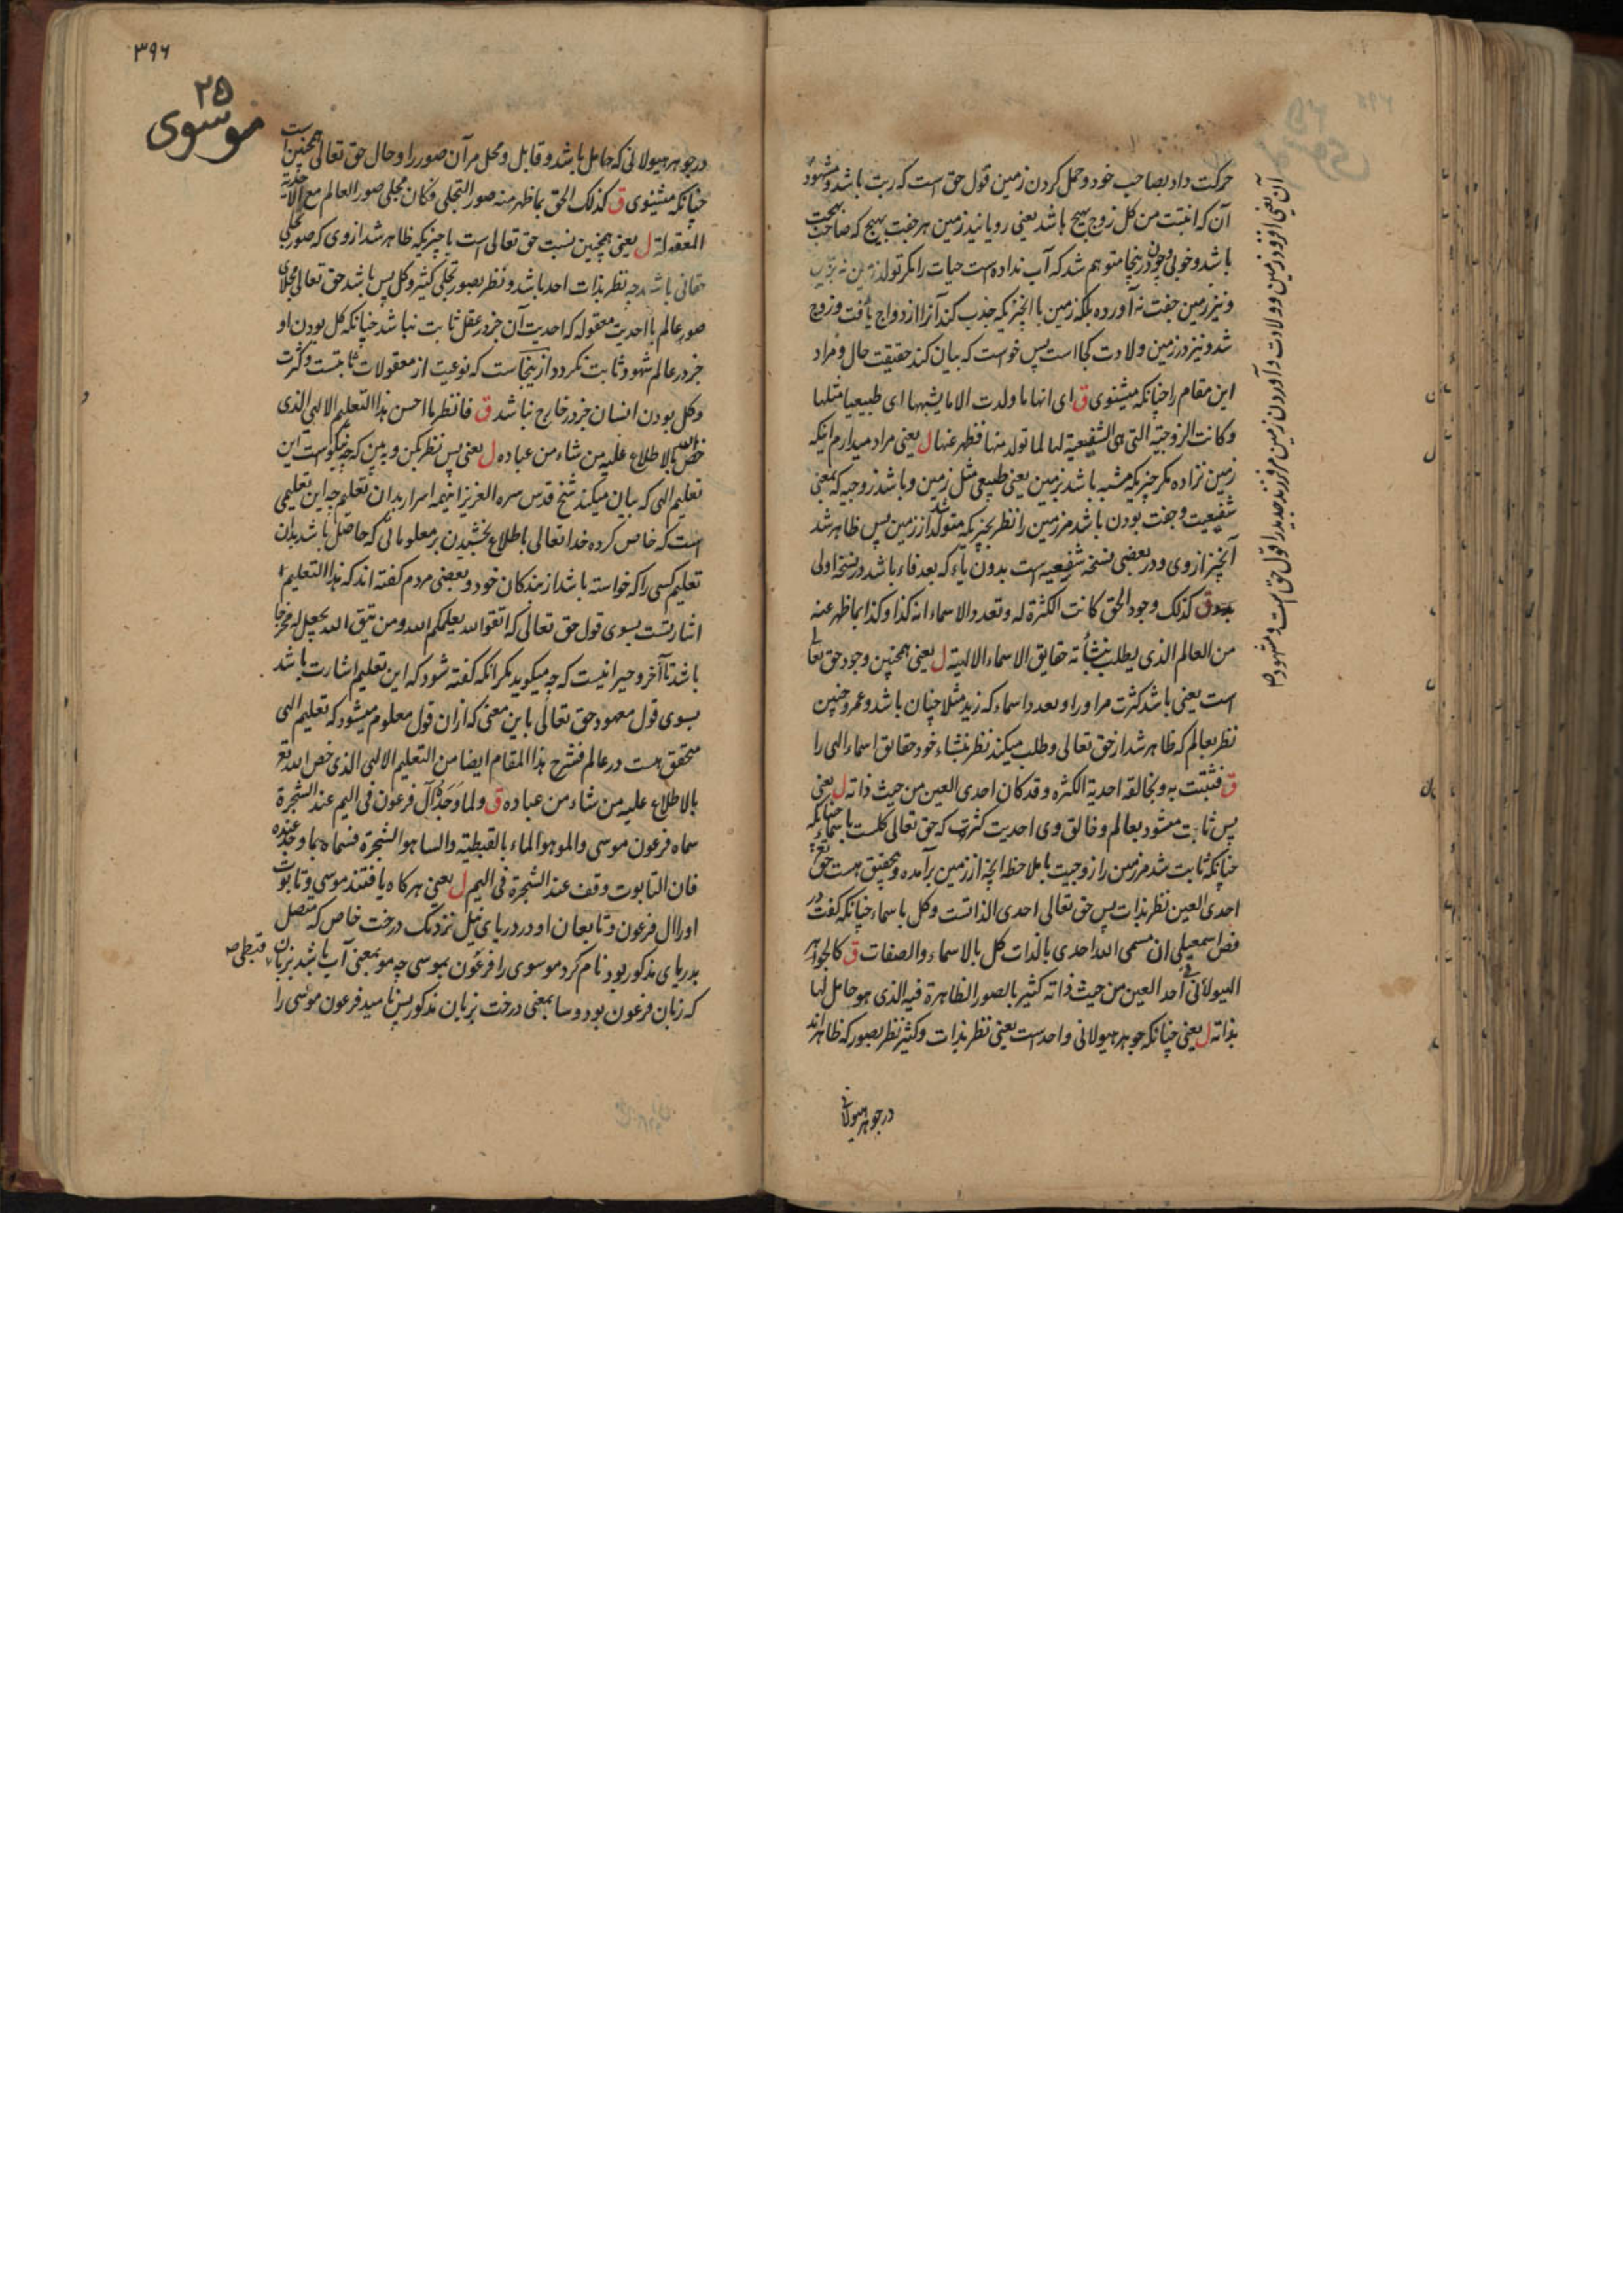 حرکت داد بصاحب خود و حمل کردن زمین قول حق است که ربت باشد و مشهود
آن که انبتت من کل زوج بهیج باشد یعنی رویانید زمین هر جفت بهیج که صاحب بهجت
باشد و خوبی و چون درینجا متوهم شد که آب نداده است حیات را مگر تولد زمین نه بزمین
و نیز زمین جفت نه آورده بلکه زمین با آنچیزیکه جذب کند آنرا ازدواج یافت و زوج
شد و نیز در زمین ولادت کجا است پس خواست که بیان کند حقیقت حال و مراد
این مقام را چنانکه میشنوی ق ای انها ما ولدت الا ما یشبهها ای طبیعیا مثلها
و کانت الزوجیة التی هی الشفیعیة لها لما تولد منها فظهر عنها ل یعنی مراد میدارم اینکه
زمین نزاده مگر چیزیکه مشبه باشد بزمین یعنی طبیعی مثل زمین و باشد زوجیه که بمعنی
شفیعیت و جفت بودن باشد مر زمین را نظر بچیزیکه متولد شد از زمین پس ظاهر شد
آنچیز از وی و در بعضی نسخه شفیعیه است بدون یاء که بعد فاء باشد در نسخه اولی
ق کذلک وجود الحق کانت الکثرة له و تعدد الاسماء انه کذا و کذا بما ظهر عنه
من العالم الذی یطلب بنشأته حقایق الاسماء الالهیة ل یعنی همچنین وجود حق تعالی
است یعنی باشد کثرت مر او را و تعدد اسماء که زید مثلا چنان باشد و عمرو چنین
نظر بعالم که ظاهر شد از حق تعالی و طلب میکند نظر بنشاء خود حقایق اسماء الهی را
ق فثبتت به و بخالقه احدیة الکثره و قد کان احدی العین من حیث ذاته ل یعنی
پس ثابت میشود بعالم و خالق وی احدیت کثرت که حق تعالی کلست باسماء چنانکه
چنانکه ثابت شد مر زمین را زوجیت بملاحظه آنچه از زمین برآمده و بتحقیق هست حق تع
احدی العین نظر بذات پس حق تعالی احدی الذاتست و کل باسماء چنانکه گفت در
فص اسمعیلی ان مسمی الله احدی بالذات کل بالاسماء و الصفات ق کالجوهر
الهیولانی احد العین من حیث ذاته کثیر بالصور الظاهرة فیه الذی هو حامل لها
بذاته ل یعنی چنانکه جوهر هیولانی واحد است یعنی نظر بذات و کثیر نظر بصور که ظاهراند
در جوهر هیولانی
۳۹۶
۲۵
موسوی
در جوهر هیولانی که حامل باشد و قابل و محل مر آن صور را و حال حق تعالی همچنین است
چنانکه میشنوی ق کذلک الحق بما ظهر منه صور التجلی و کان مجلی صور العالم مع الاحدیة
المعقولة ل یعنی همچنین نسبت حق تعالی است با چیزیکه ظاهر شد از وی که صور تجلی
حقانی باشد چه نظر بذات احد باشد و نظر بصور تجلی کثیر و کل پس باشد حق تعالی مجلای
صور عالم با احدیت معقوله که احدیت آن جز در عقل ثابت نباشد چنانکه کل بودن او
جز در عالم شهود ثابت نگردد از ینجاست که نوعیت از معقولات ثابتست و کثرت
و کل بودن انسان جز در خارج نباشد ق فانظر ما احسن هذا التعلیم الالهی الذی
خص الله بالاطلاع علیه من شاء من عباده ل یعنی پس نظر بکن و به بین که چه نیکوست این
تعلیم الهی که بیان میکند شیخ قدس سره العزیز اینهمه اسرار بدان تعلیم چه این تعلیمی
است که خاص کرده خدا تعالی باطلاع بخشیدن بر معلوماتی که حاصل باشد بدان
تعلیم کسی را که خواسته باشد از بندکان خود و بعضی مردم گفته اند که هذا التعلیم
اشارتست بسوی قول حق تعالی که اتقوا الله یعلمکم الله و من یتق الله یجعل له مخرجا
باشد تا آخر و حیرانیست که چه میکوید مگر آنکه گفته شود که این تعلیم اشارت باشد
بسوی قول معهود حق تعالی باین معنی که ازان قول معلوم میشود که تعلیم الهی
متحقق است در عالم فشرح هذا المقام ایضا من التعلیم الالهی الذی خص الله تع
بالاطلاع علیه من شاء من عباده ق و لما وجده آل فرعون فی الیم عند الشجرة
سماه فرعون موسی و المو هو الماء بالقبطیة و السا هو الشجرة فسماه بما وجده عنده
فان التابوت وقف عند الشجرة فی الیم ل یعنی هر کاه یافتند موسی و تابوت
او را آل فرعون و تابعان او در دریای نیل نزدیک درخت خاص که متصل
بدریای مذکور بود نام کرد موسوی را فرعون بموسی چه مو بمعنی آب باشد بزبان قبطی
که زبان فرعون بود و سا بمعنی درخت بزبان مذکور پس نامید فرعون موسی را